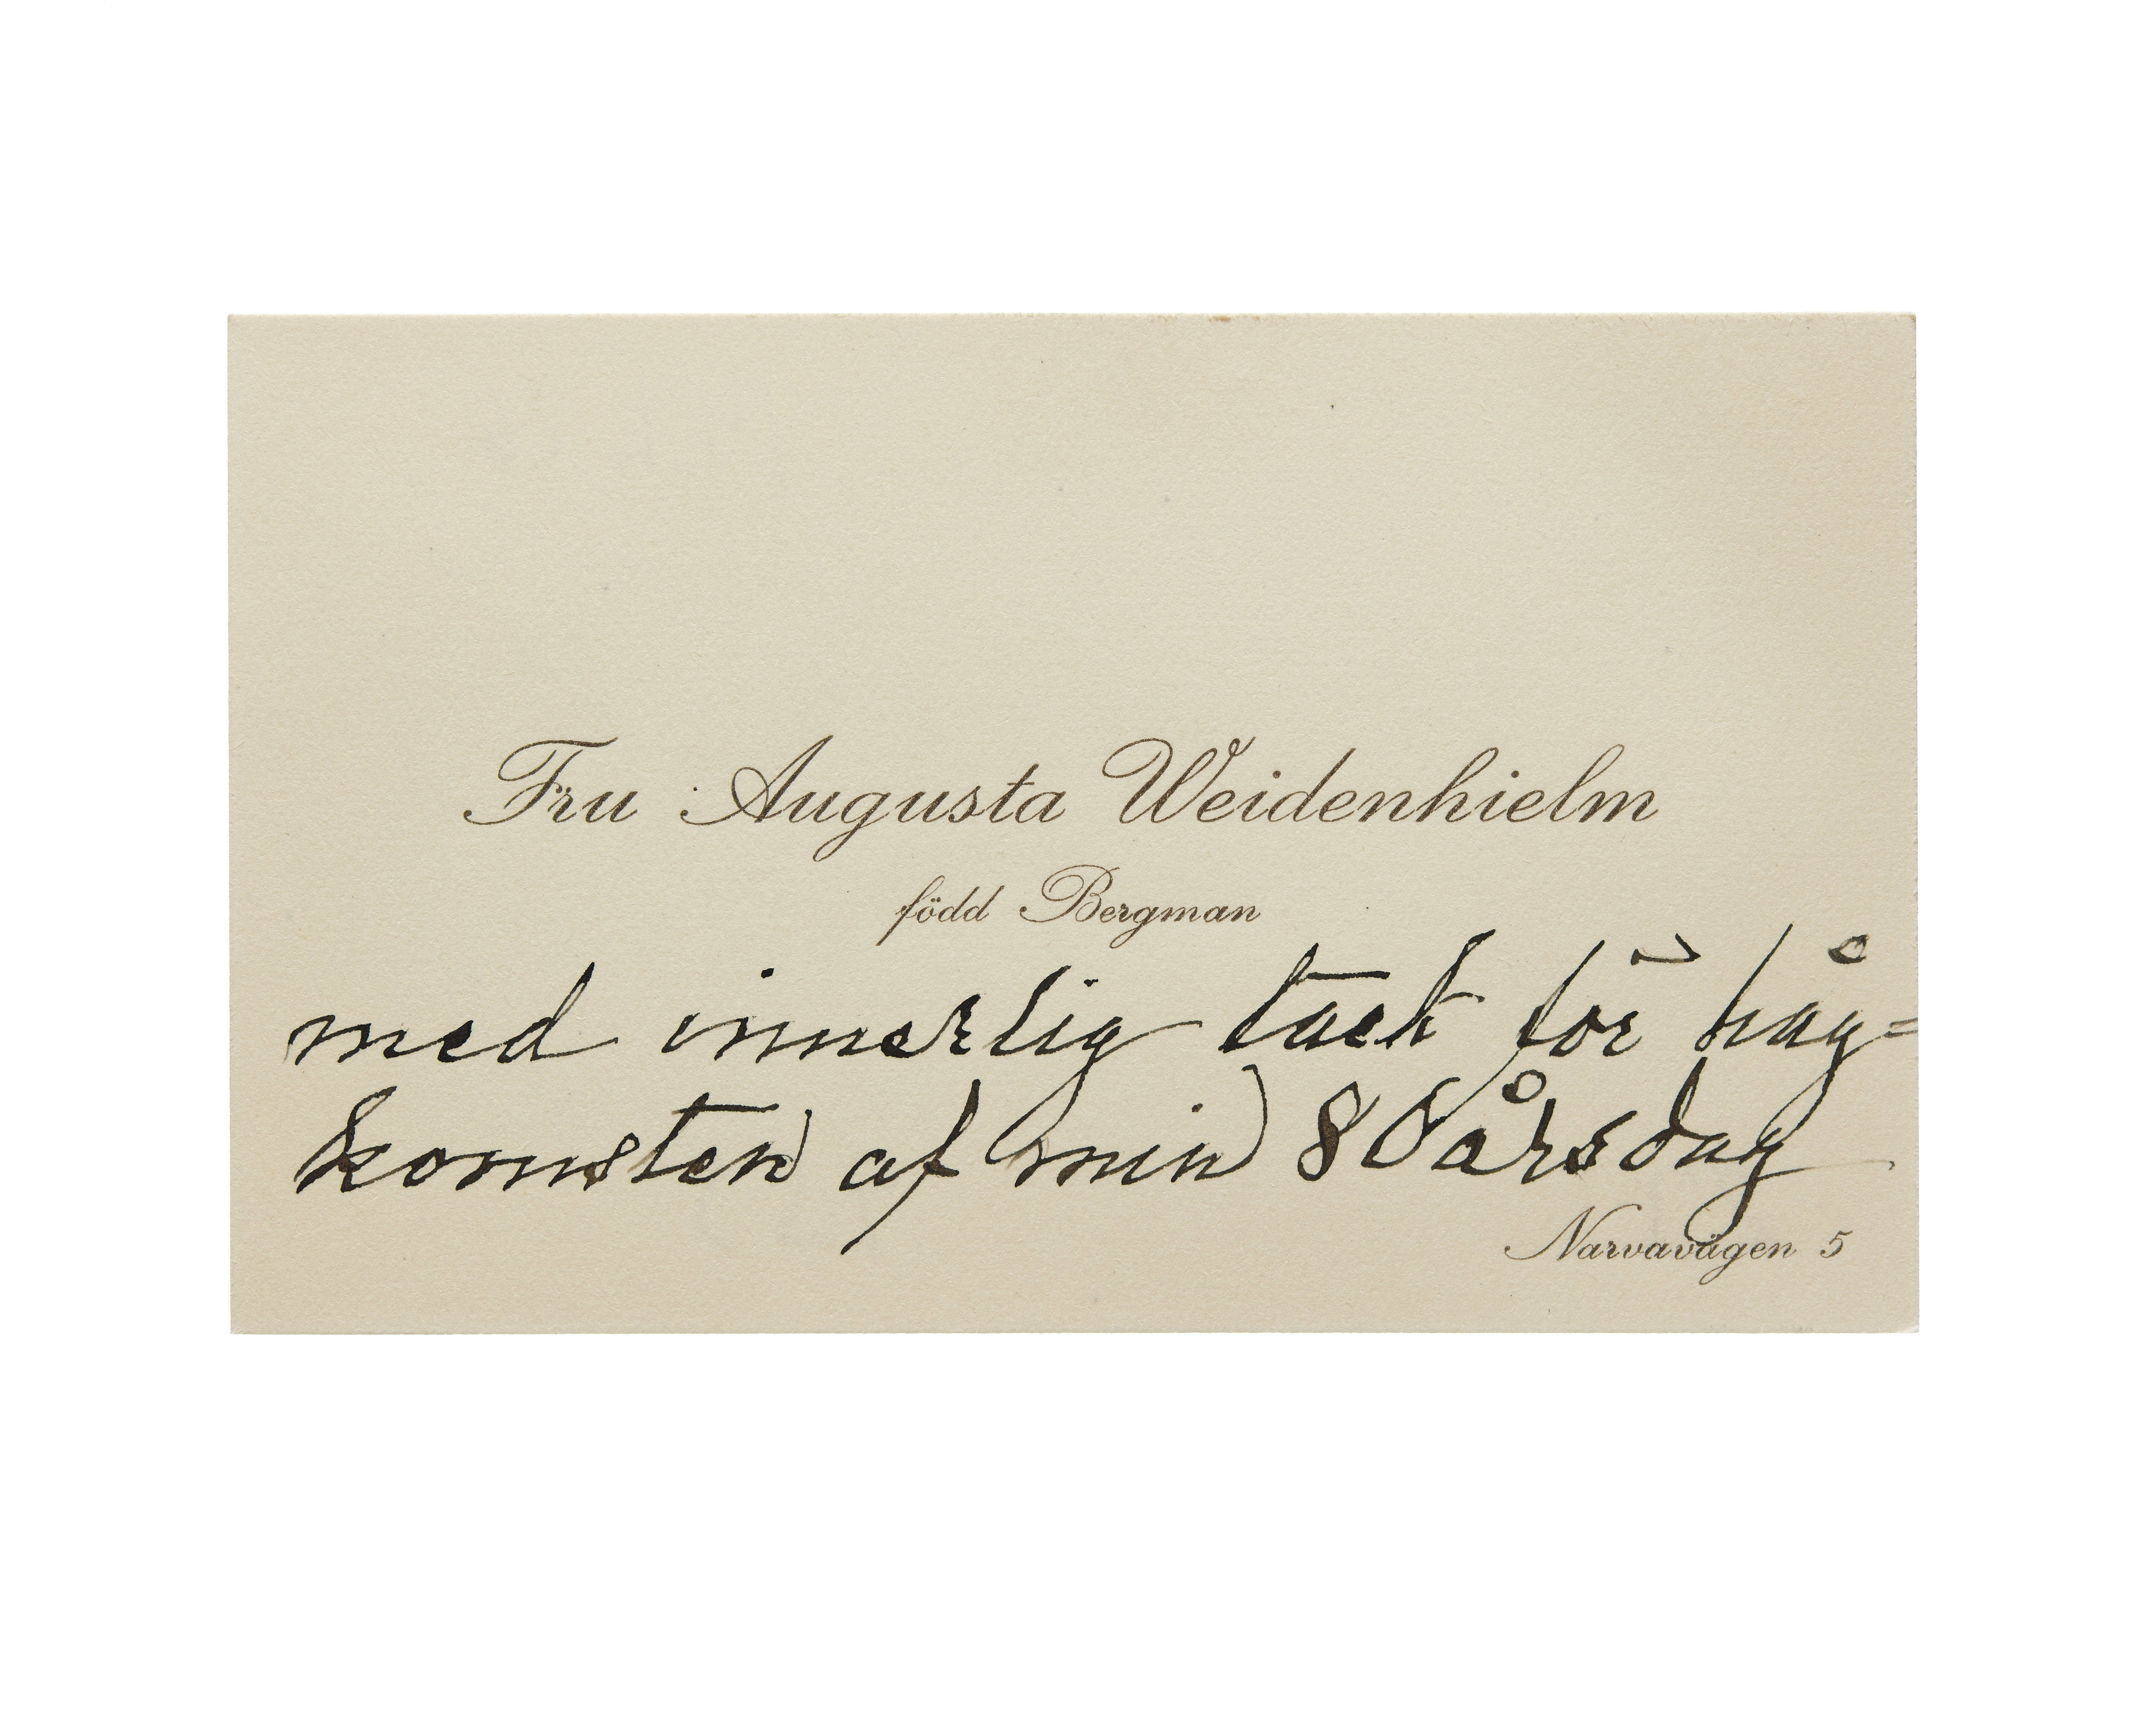 Fru Augusta Weidenhielm
född Bergman
med innerlig tack för håg=
komsten af min 80årsdag
Narvavägen 5